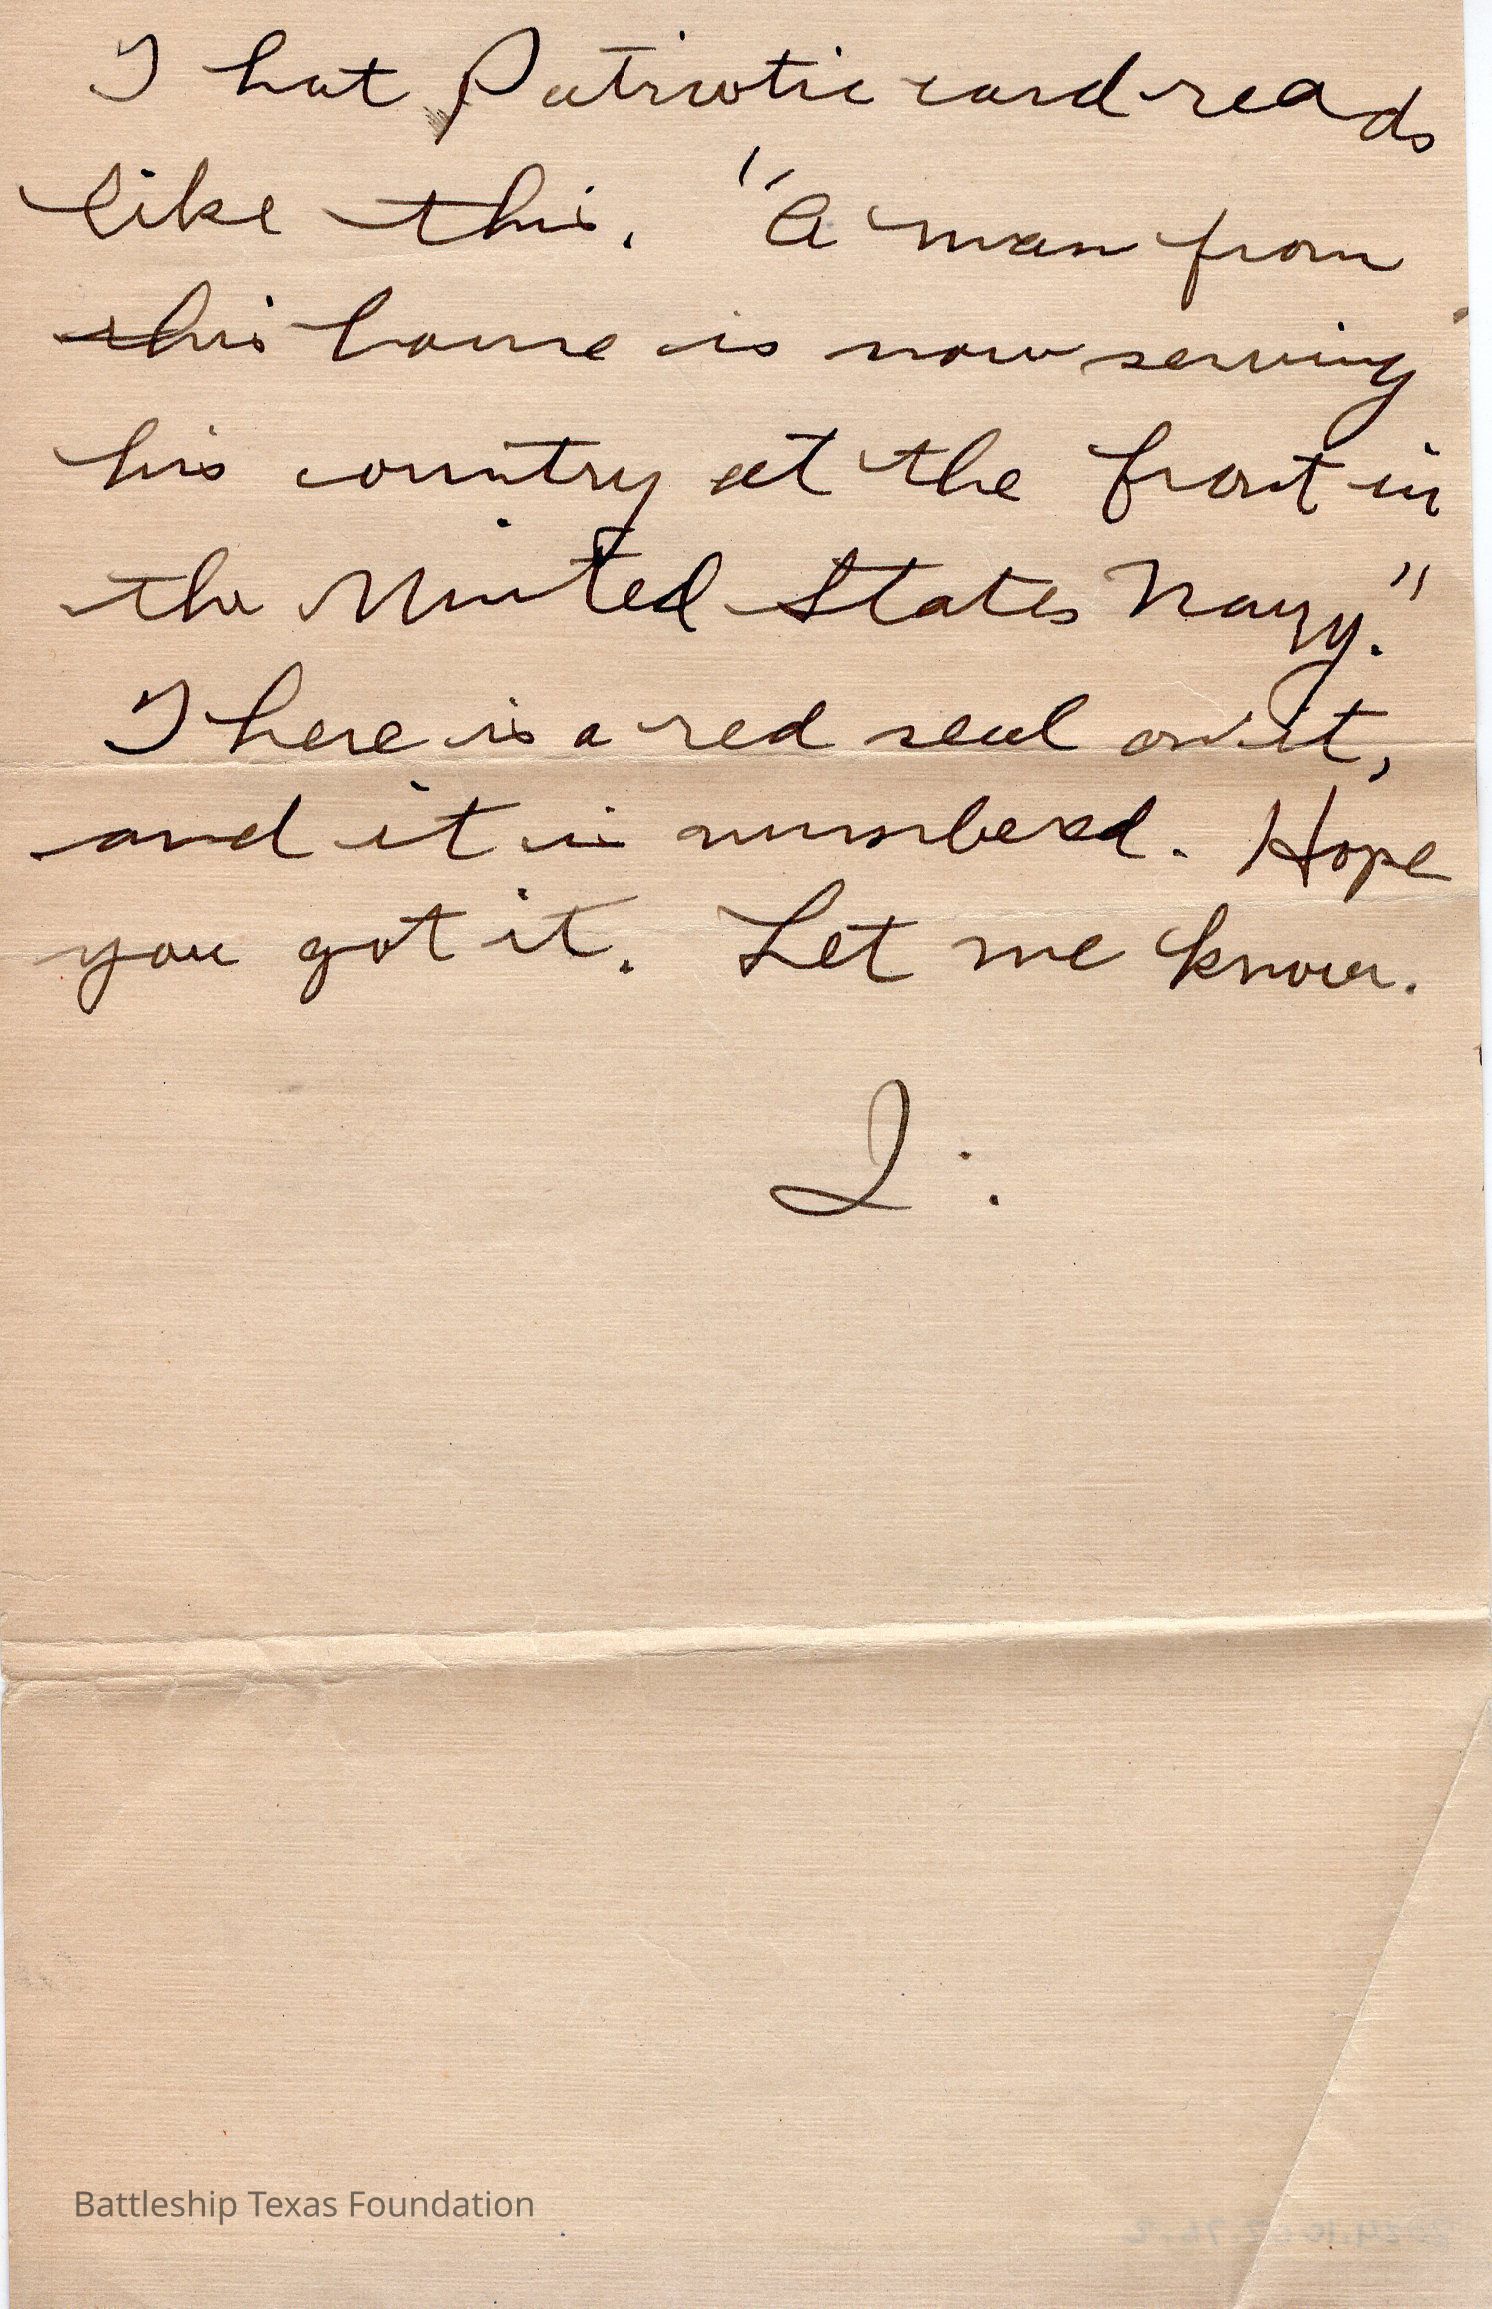 That Patriotic card reads
like this. "A man from
this house is now serving
his country at the front in
the United States Navy."
There is a red seal on it,
and it is numbered. Hope
you got it. Let me know.
I.
Battleship Texas Foundation